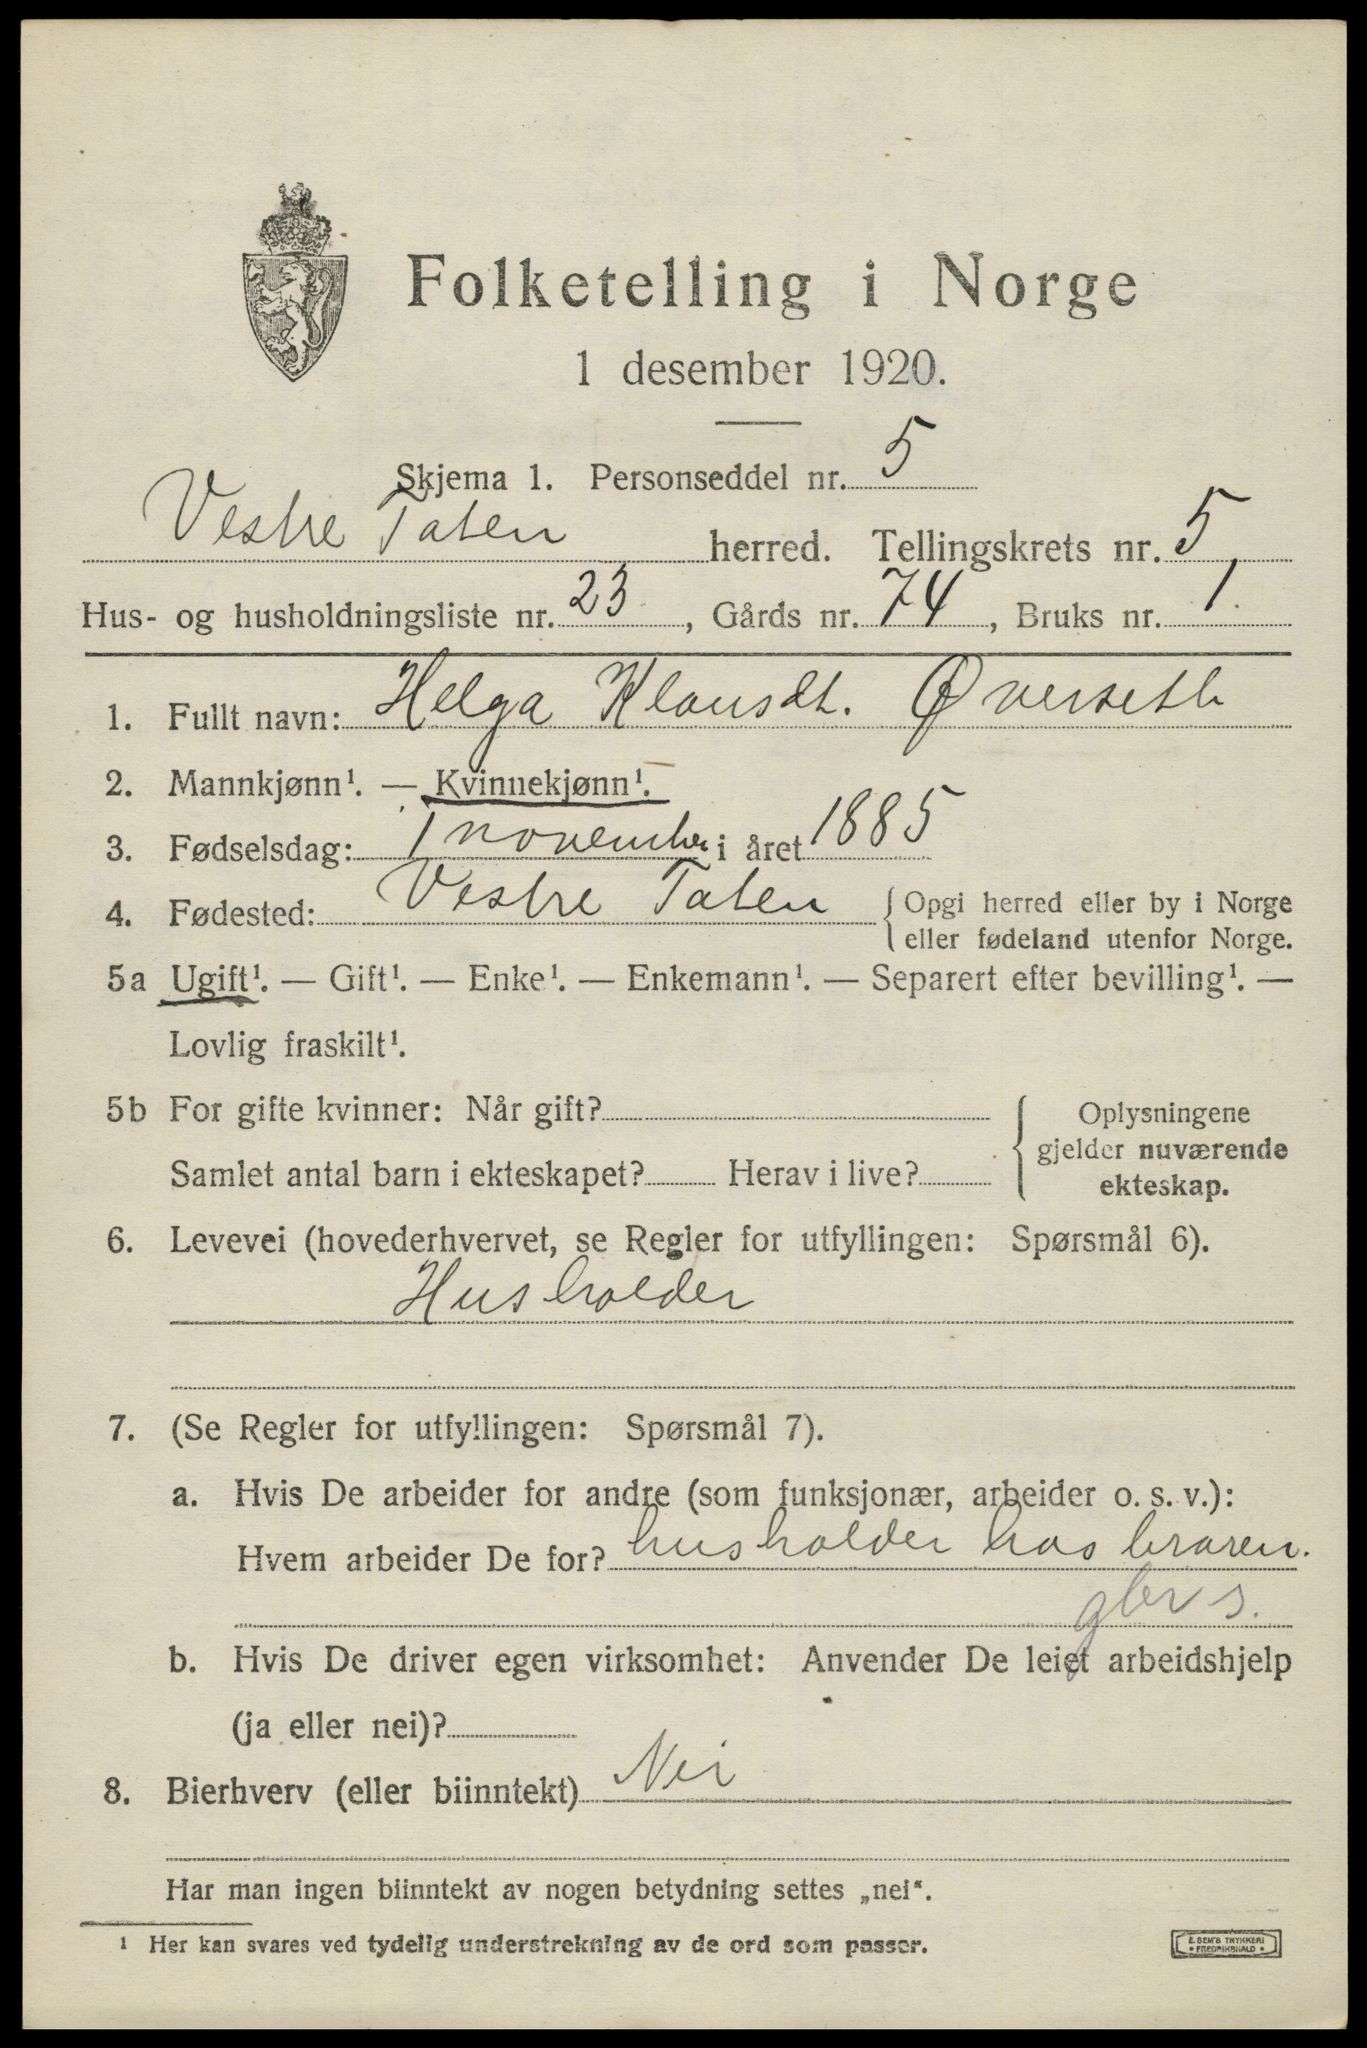 Folketelling i Norge
1 desember 1920.
Skjema 1. Personseddel nr. 5
Vestre Toten herred. Tellingskrets nr. 5
Hus- og husholdningsliste nr. 23, Gårds nr. 74, Bruks nr. 1
1. Fullt navn: Helga Klausdt. Øverseth
2. Mannkjønn¹. — Kvinnekjønn¹.
3. Fødselsdag: 1 november i året 1885
4. Fødested: Vestre Toten { Opgi herred eller by i Norge
eller fødeland utenfor Norge.
5a Ugift¹. — Gift¹. — Enke¹. — Enkemann¹. — Separert efter bevilling¹. —
Lovlig fraskilt¹.
5b For gifte kvinner: Når gift?
Samlet antal barn i ekteskapet? Herav i live?
Oplysningene
gjelder nuværende
ekteskap.
6. Levevei (hovederhvervet, se Regler for utfyllingen: Spørsmål 6).
Husholder
7. (Se Regler for utfyllingen: Spørsmål 7).
a. Hvis De arbeider for andre (som funksjonær, arbeider o. s. v.):
Hvem arbeider De for? husholder hos broren.
gbr s.
b. Hvis De driver egen virksomhet: Anvender De leiet arbeidshjelp
(ja eller nei)?
8. Bierhverv (eller biinntekt) Nei
Har man ingen biinntekt av nogen betydning settes „nei“.
¹ Her kan svares ved tydelig understrekning av de ord som passer.
E. SEM'S TRYKKERI
• FREDRIKSHALD •